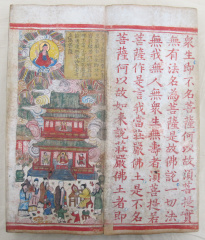 衆生即不名菩薩何以故須菩提實
無有法名為菩薩是故佛說一切法
無我無人無衆生無壽者須菩提若
菩薩作是言我當莊嚴佛土是不名
菩薩何以故如來說莊嚴佛土者即